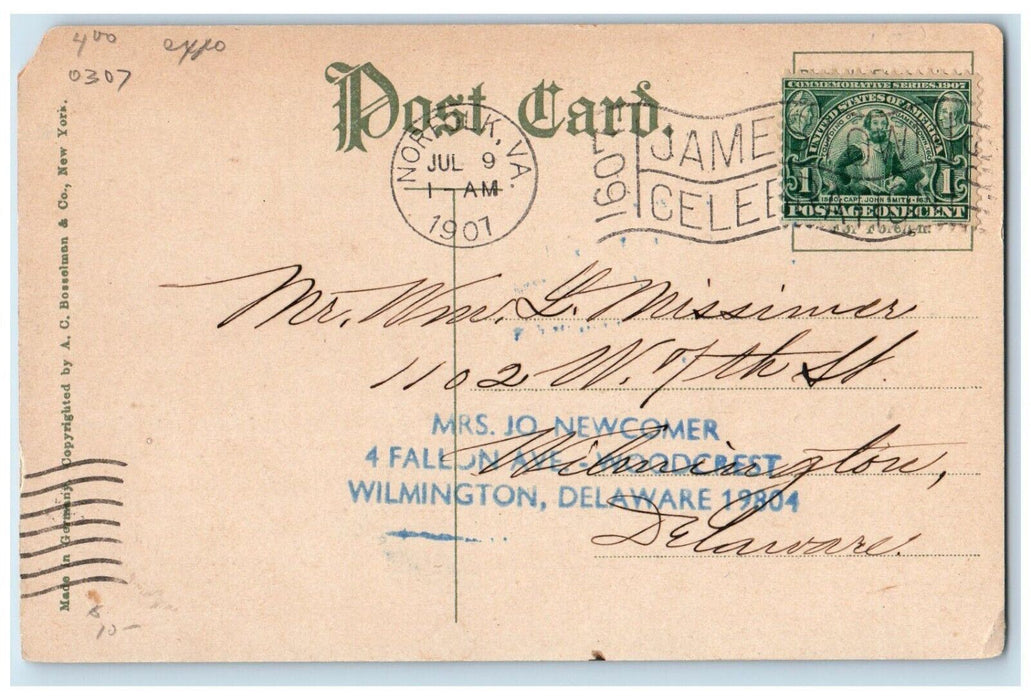 4 00 expo
0307
Post Card.
NORFOLK, VA.
JUL 9
1-AM
1907
1607
JAME
CELEB
COMMEMORATIVE SERIES 1907
UNITED STATES OF AMERICA
1580 CAPT. JOHN SMITH 1631
1 1
POSTAGE ONE CENT
For Foreign
Mr. Wm. G. Missimer
1102 W. 7th St.
Wilmington,
Delaware.
MRS. JO NEWCOMER
4 FALLON AVE - WOODCREST
WILMINGTON, DELAWARE 19804
Made in Germany. Copyrighted by A. C. Bosselman & Co., New York.
10-